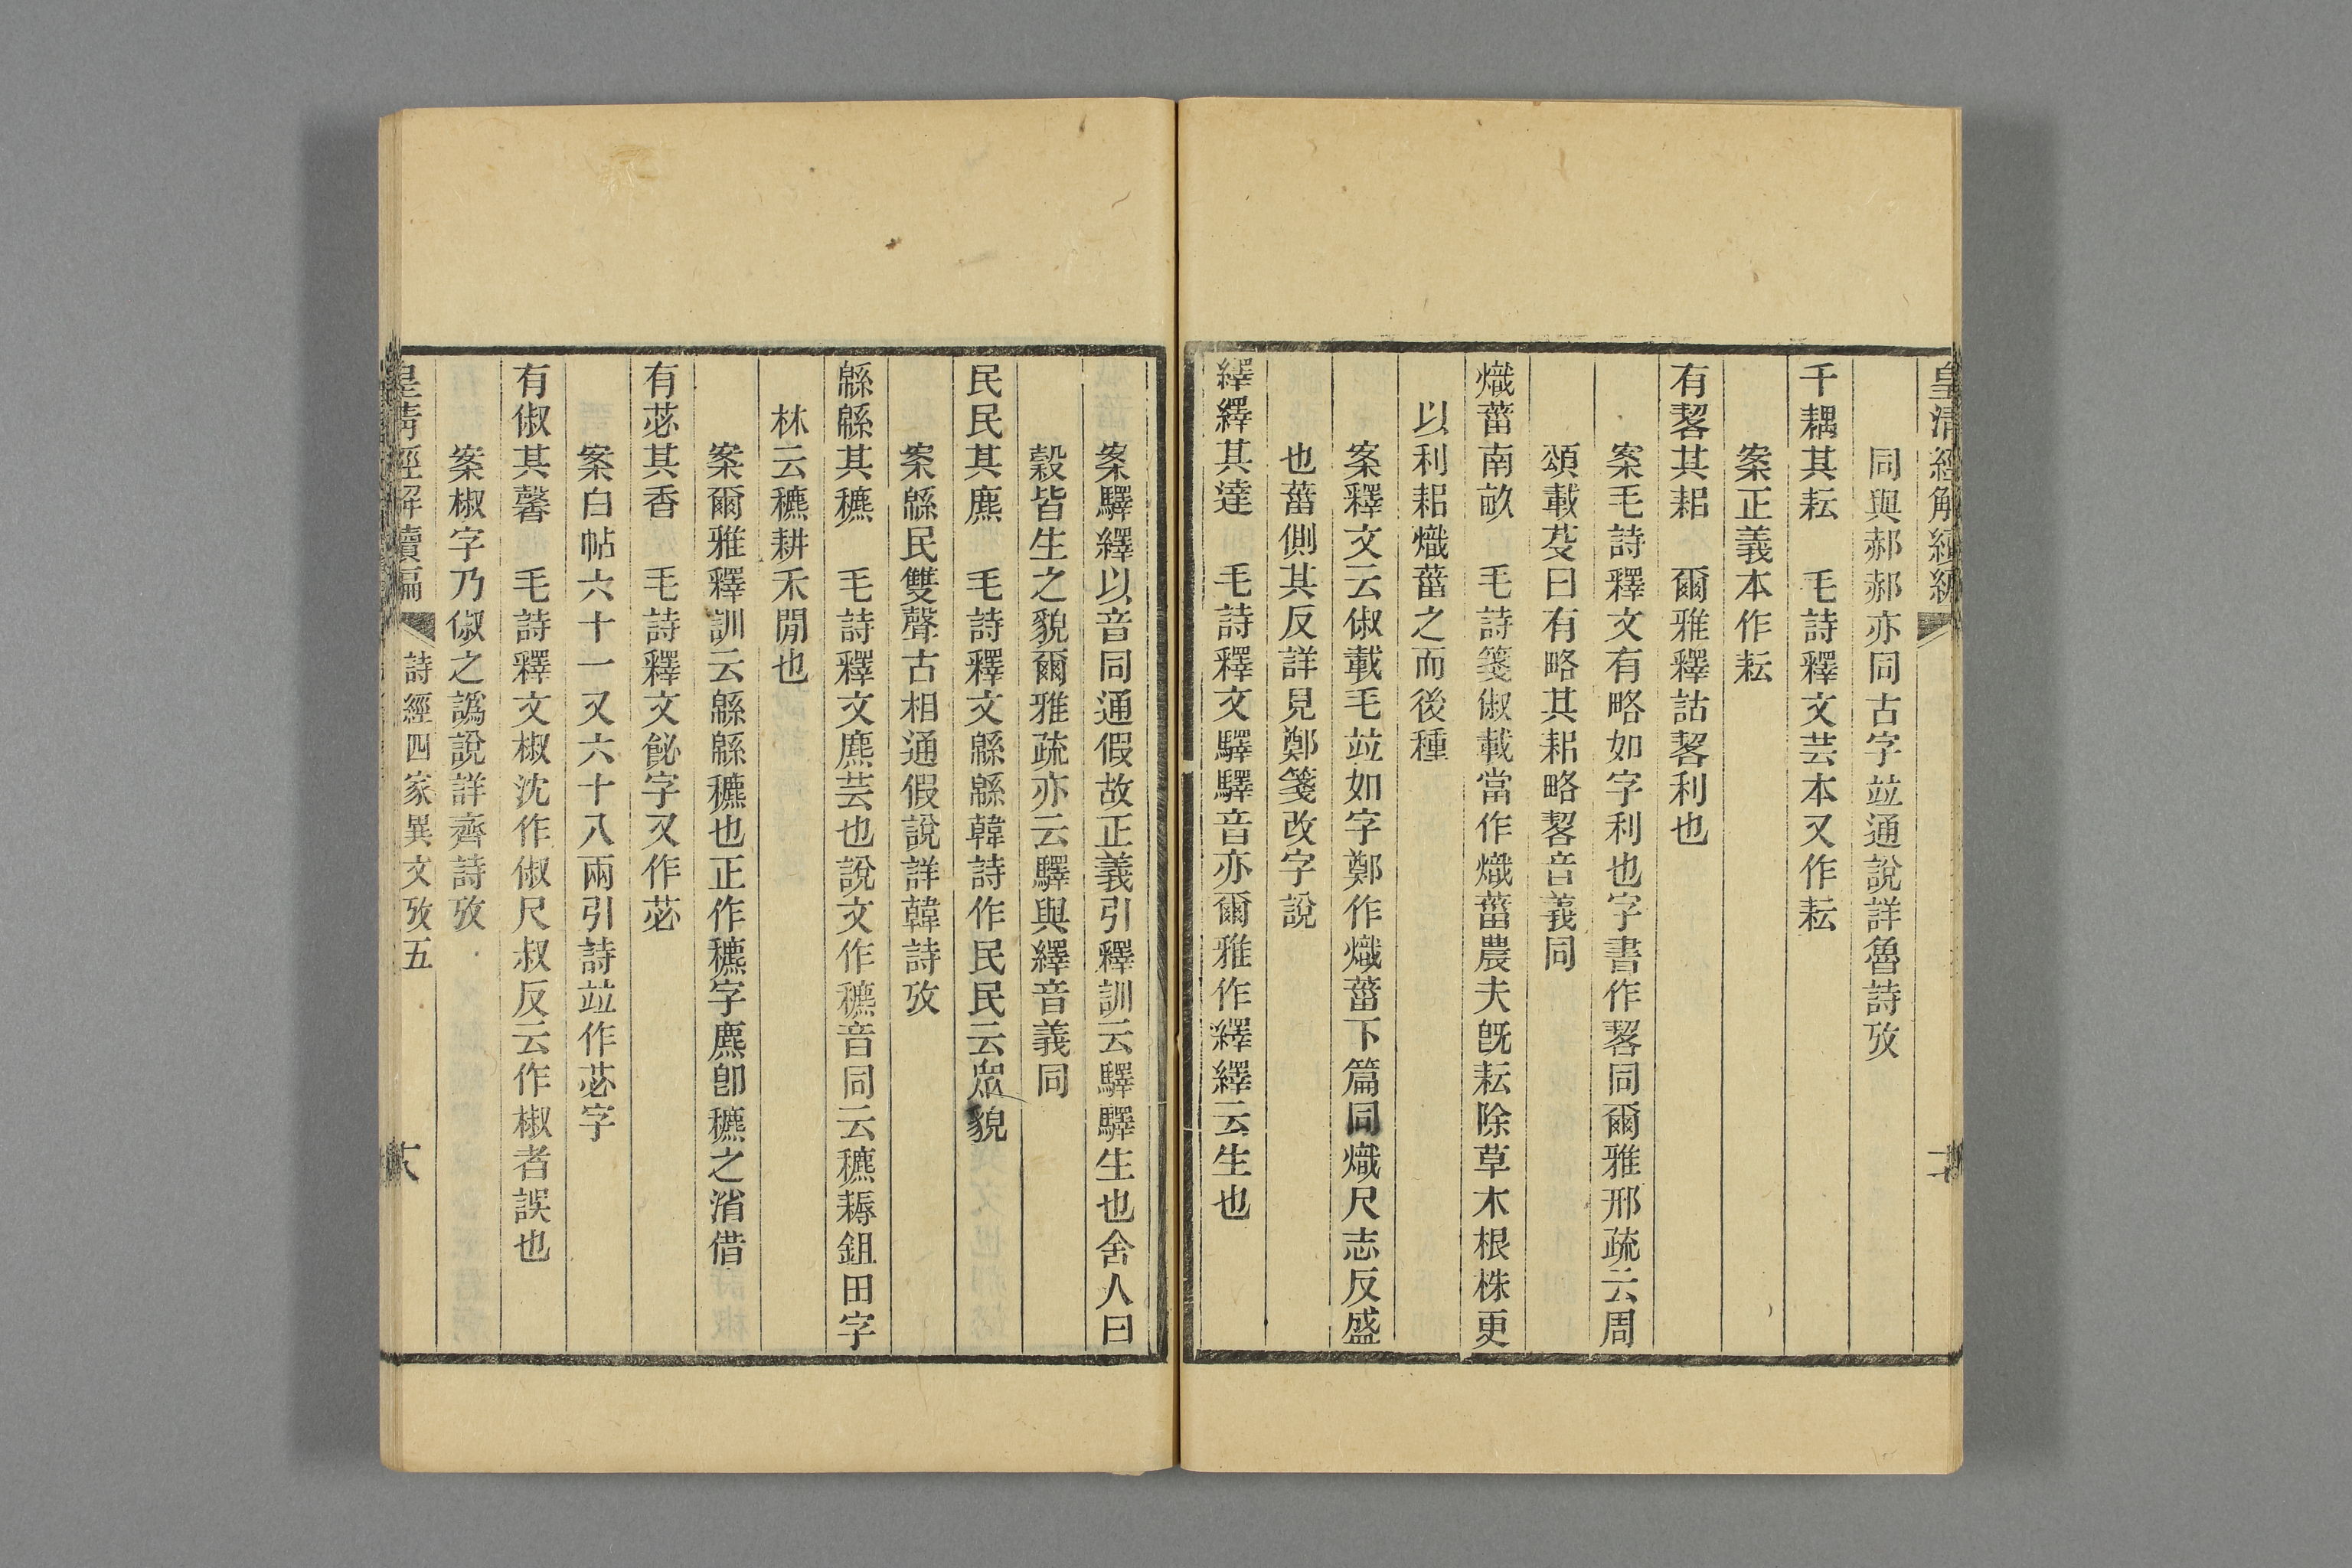 皇清經解續編
同與郝郝亦同古字竝通說詳魯詩攷
千耦其耘　毛詩釋文芸本又作耘
案正義本作耘
有䂮其耜　爾雅釋詁䂮利也
案毛詩釋文有略如字利也字書作䂮同爾雅邢疏云周
頌載芟曰有略其耜略䂮音義同
熾葘南畝　毛詩箋俶載當作熾葘農夫旣耘除草木根株更
以利耜熾葘之而後種
案釋文云俶載毛竝如字鄭作熾葘下篇同熾尺志反盛
也葘側其反詳見鄭箋改字說
繹繹其達　毛詩釋文驛驛音亦爾雅作繹繹云生也
案驛繹以音同通假故正義引釋訓云驛驛生也舍人曰
穀皆生之貌爾雅疏亦云驛與繹音義同
民民其麃　毛詩釋文緜緜韓詩作民民云眾貌
案緜民雙聲古相通假說詳韓詩攷
緜緜其穮　毛詩釋文麃芸也說文作穮音同云穮耨鉏田字
林云穮耕禾閒也
案爾雅釋訓云緜緜穮也正作穮字麃卽穮之消借
有苾其香　毛詩釋文飶字又作苾
案白帖六十一又六十八兩引詩竝作苾字
有俶其馨　毛詩釋文椒沈作俶尺叔反云作椒者誤也
案椒字乃俶之譌說詳齊詩攷
皇清經解續編　詩經四家異文攷五